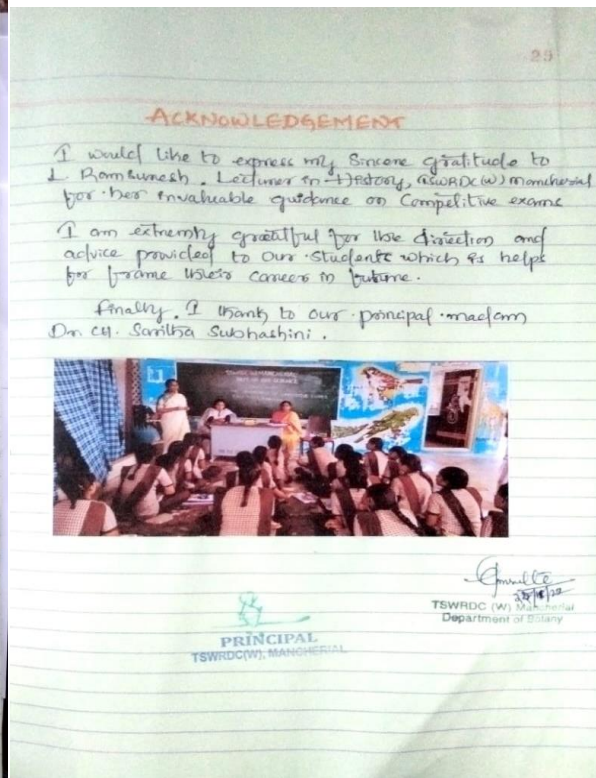 29
ACKNOWLEDGEMENT
I would like to express my Sincere gratitude to
L. Ramsunesh. Lecturer in History, TSWRDC(W) Mancherial
for her invaluable guidance on Competitive exams
I am extremly gratitful for the direction and
advice provided to our students which is helps
for frame their career in future.
Finally. I thank to our principal madam
Dr. CH. Saritha Subhashini.
PRINCIPAL
TSWRDC(W), MANCHERIAL
TSWRDC (W) Mancherial
Department of Botany